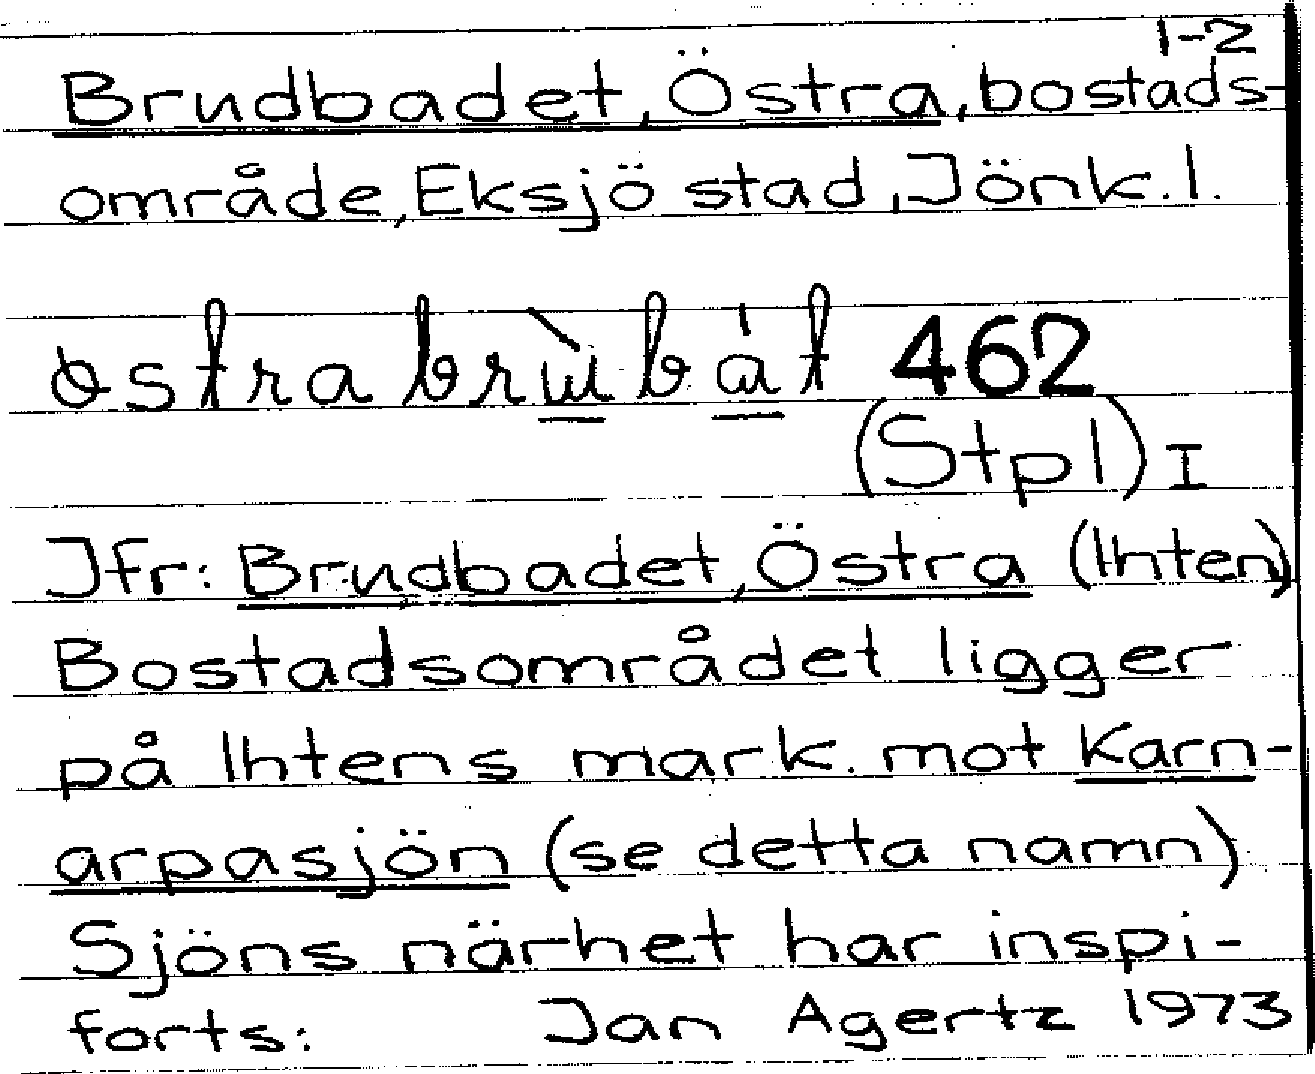 1-2
Brudbadet, Östra, bostads-
område, Eksjö stad, Jönk. l.
462
(Stpl) I
Jfr: Brudbadet, Östra (Ihten)
Bostadsområdet ligger
på Ihtens mark. mot Karn-
arpasjön (se detta namn)
Sjöns närhet har inspi-
forts: Jan Agertz 1973